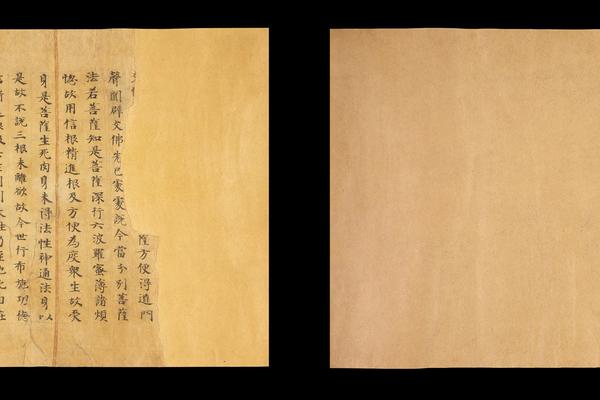 薩方便得道門
聲聞辟支佛先已處處說今當分別菩薩
法若菩薩知是菩薩深行六波羅蜜薄諸煩
惱故用信根精進根及方便為度眾生故受
身是菩薩生死肉身未得法性神通法身以
是故不說三根未離欲故今世行布施功德